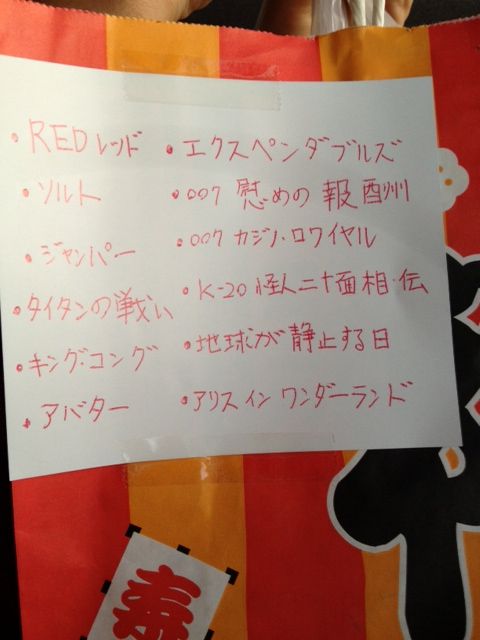 ・REDレッド
・ソルト
・ジャンパー
・タイタンの戦い
・キング・コング
・アバター
・エクスペンダブルズ
・007 慰めの報酬
・007 カジノ・ロワイヤル
・K-20 怪人二十面相・伝
・地球が静止する日
・アリス イン ワンダーランド
寿